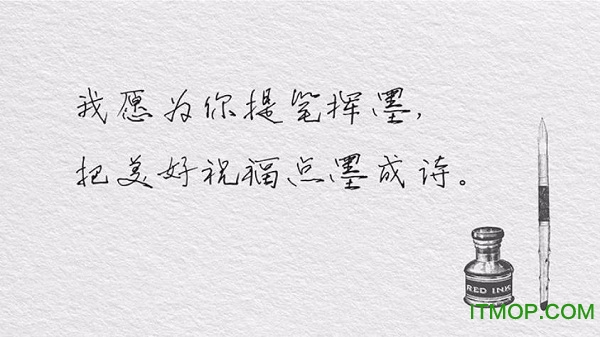 我愿为你提笔挥墨,
把美好祝福点墨成诗。
RED INK
ITMOP.COM